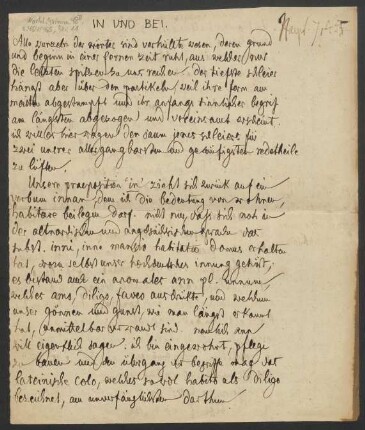 IN UND BEI.
Alle wurzeln der wörter sind verhüllte wesen, deren grund
und beginn in einer fernen zeit ruht, aus welcher nur
die letzten spitzen zu uns reichen. der tiefste schleier
hängt aber über den partikeln, weil ihre form am
meisten abgestumpft und ihr anfangs sinnlicher begrif
am längsten abgezogen und vergeistigt erscheint.
ich will es hier wagen den saum jenes schleiers für
zwei unsrer allergangbarsten und geläufigsten redetheile
zu lüften.
Unsere praeposition in zieht sich zurück auf ein
verbum innan, dem ich die bedeutung von wohnen,
habitare beilegen darf. nicht nur, dass sich noch in
der altnordischen und angelsächsischen sprache das
subst. inni, inne mansio habitatio domus erhalten
hat, wozu selbst unser hochdeutsches innung gehört;
es bestand auch ein anomales ann pl. unnum
welches amo, diligo, faveo ausdrückt, und welchem
unser gönnen und gunst, wie man längst erkannt
hat, unmittelbar verwandt sind. nemlich ann
will eigentlich sagen: ich bin eingewohnt, pflege
zu bauen und den übergang der begriffe mag das
lateinische colo, welches sowol habito als diligo
bezeichnet, am unverfänglichsten darthun.